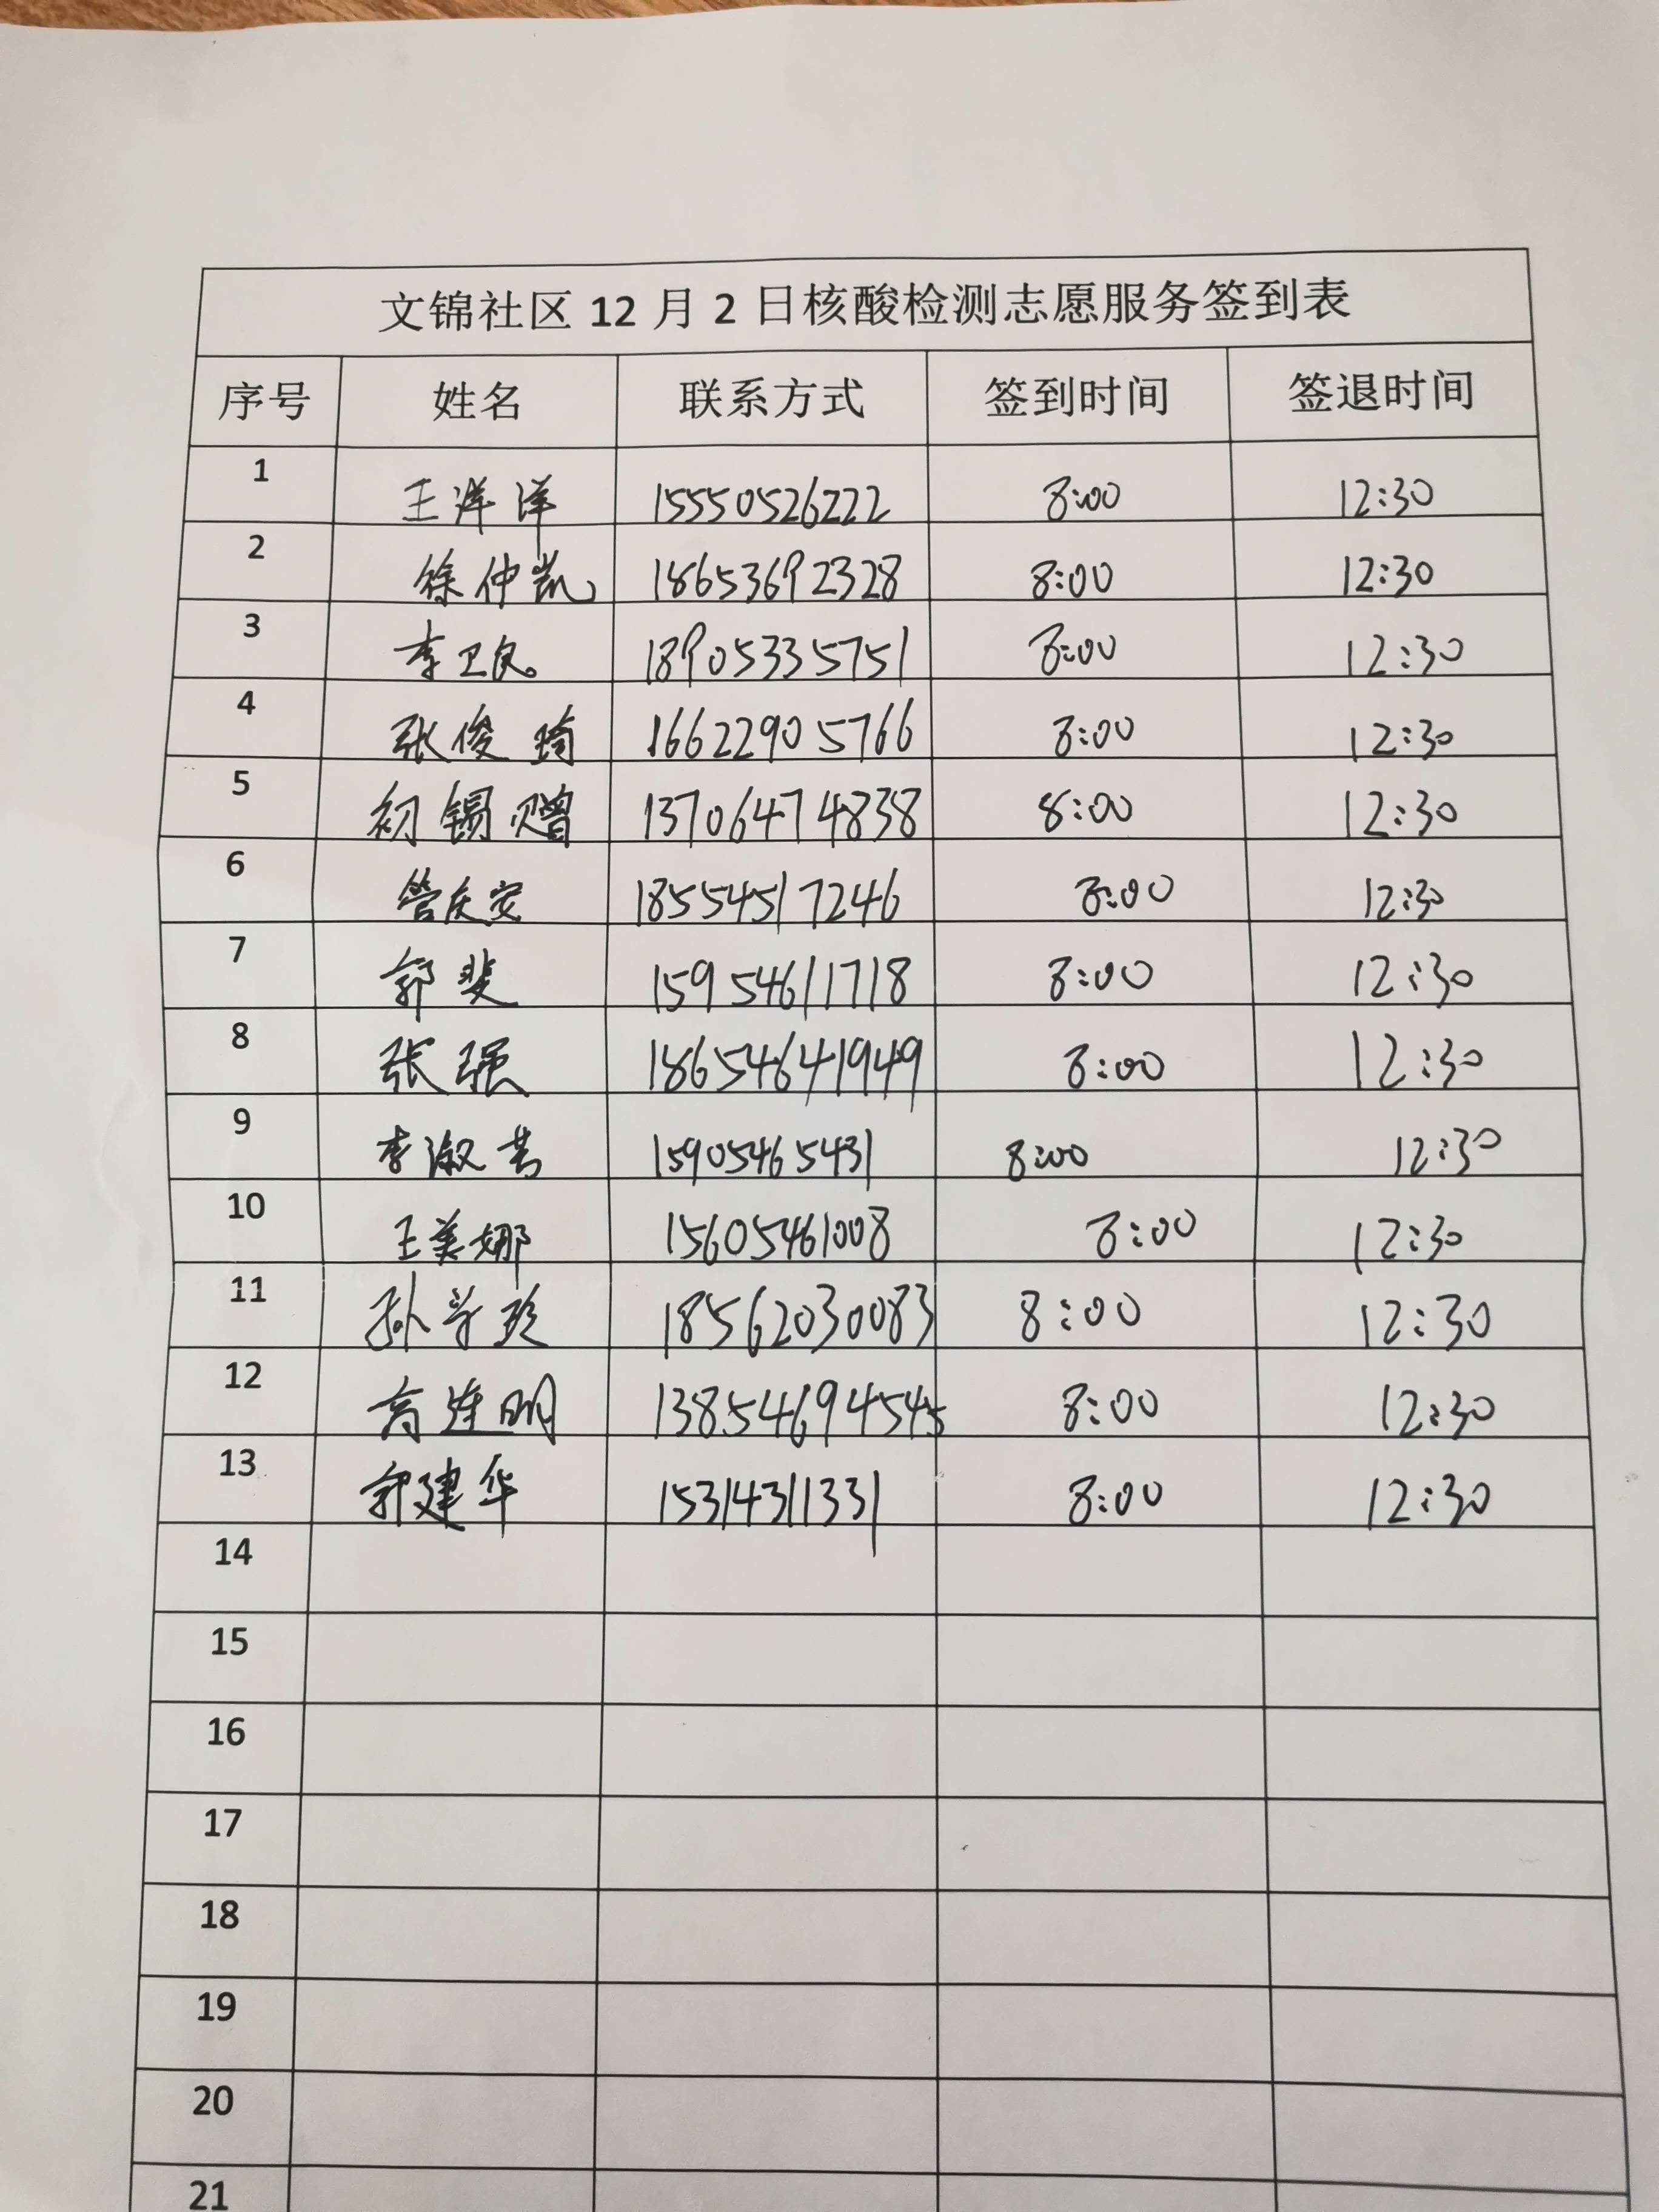 文锦社区12月2日核酸检测志愿服务签到表
序号 姓名 联系方式 签到时间 签退时间
1 王洋洋 15550526222 8:00 12:30
2 徐仲凯 18653692328 8:00 12:30
3 李卫良 18905335751 8:00 12:30
4 张俊琦 16622905766 8:00 12:30
5 初锡赠 13706474838 8:00 12:30
6 管庆安 18554517246 8:00 12:30
7 郭斐 15954611718 8:00 12:30
8 张强 18654641949 8:00 12:30
9 李淑芳 15905465431 8:00 12:30
10 王美娜 15605461008 8:00 12:30
11 18562030083 8:00 12:30
12 高连明 13854694545 8:00 12:30
13 郭建华 15314311331 8:00 12:30
14
15
16
17
18
19
20
21